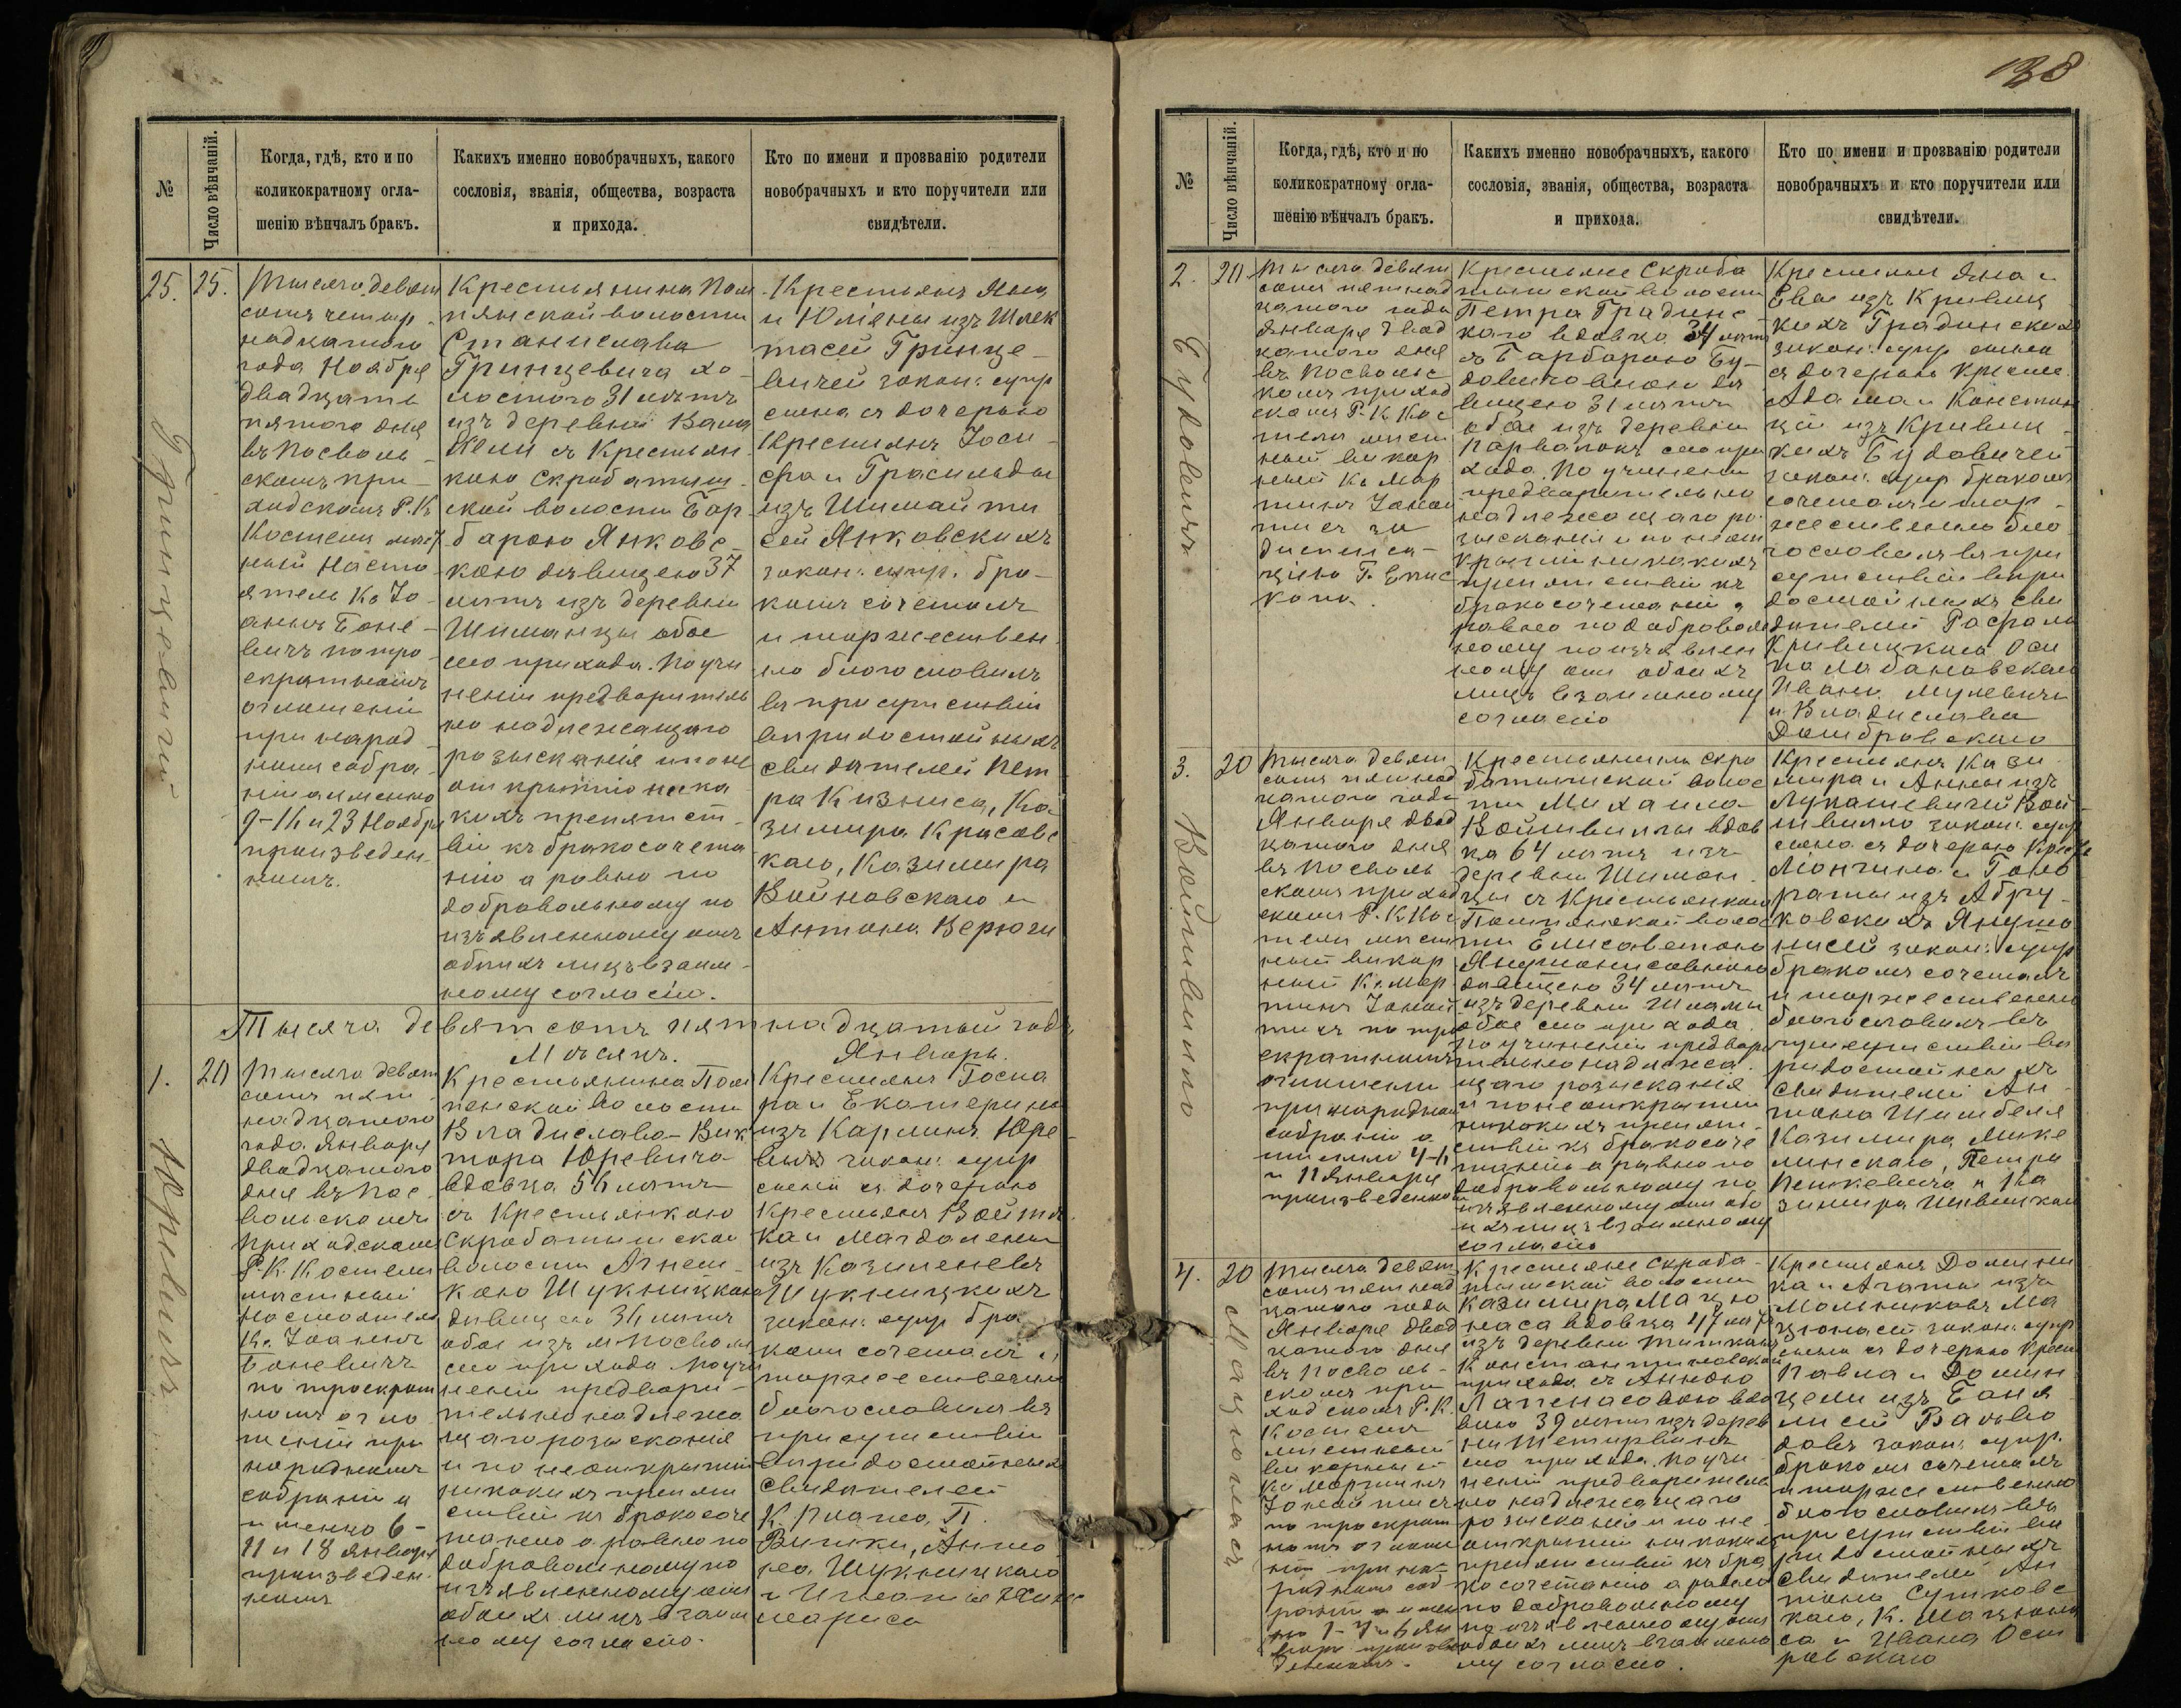 138
№
Число вѣнчаній.
Когда, гдѣ, кто и по
коликократному огла-
шенію вѣнчалъ бракъ.
Какихъ именно новобрачныхъ, какого
сословія, званія, общества, возраста
и прихода.
Кто по имени и прозванію родители
новобрачныхъ и кто поручители или
свидѣтели.
25.
25.
Тысяча девят
сотъ четыр
надцатого
года Ноября
двадцать
пятого дня
въ Посволь
скомъ при-
ходскомъ Р. К.
Костелѣ мѣст
ный Насто
ятель Кс. Іо
аннъ Боне
вичъ по тро
екратномъ
оглашеніи
при народ
номъ собра
ніи именно
9-16 и 23 Ноября
произведен
номъ.
Крестьянина Пом
пянской волости
Станислава
Гринцевича хо-
лостого 31 лѣтъ
изъ деревни
съ Крестьян
кою Скробатыш
ской волости Бар
барою Янковс
кою дѣвицею 37
лѣтъ изъ деревни
Шиманцы обое
сего прихода. По учи
неніи предваритель
но надлежащаго
розысканія и по не
открытію ника
кихъ препятст
вій къ бракосочета
нію а равно по
добровольному по
изъявленному отъ
обоихъ лицъ взаим
ному согласію.
Крестьянъ Яна
и Юліяны изъ
Гринце
вичей закон: супр
сына съ дочерью
Крестьянъ Іоси
фа и Грасильды
изъ
Янковскихъ
закон: супр. бра
комъ сочеталъ
и торжествен
но благословилъ
въ присутствіи
вѣридостойныхъ
свидѣтелей Пет
ра Кизниса, Ка
зимира Красовс
каго, Казимира
Войновскаго и
Антона
Гринцевичъ
Тысяча девятсотъ пятнадцатый годъ
Мѣсяцъ. Январь.
1.
20
Тысяча девят
сотъ пят
надцатого
года Января
двадцатого
дня въ Пос
вольскомъ
приходскомъ
Р. К. Костелѣ
мѣстный
Настоятель
Кс. Іоаннъ
Боневичъ
по троекрат
номъ огла
шеніи при
народномъ
собраніи а
именно 6-
11 и 18 Января
произведен
номъ
Крестьянина Пом
пенской волости
Владислава-Вик
тора Юревича
вдовца 56 лѣтъ
съ Крестьянкою
Скробатышской
волости Агнеш
кою Шукницкою
дѣвицею 36 лѣтъ
обое изъ м. Посволь
сего прихода. По учи
неніи предвари
тельно надлежа
щаго розысканія
и по неоткрытіи
никакихъ препят
ствій къ бракосоче
танію а равно по
добровольному по
изъявленному отъ
обоихъ лицъ взаим
ному согласію.
Крестьянъ Госпа
ра и Екатерины
изъ Юре
закон: супр
сына съ дочерью
Крестьянъ Войтѣ
ха и Магдалены
изъ
Шукницкихъ
закон: супр бра
комъ сочеталъ и
торжественно
благословилъ въ
присутствіи
вѣридостойныхъ
свидѣтелей
К. П.
Анто
на Шукницкаго
и
Юревичъ
№
Число вѣнчаній.
Когда, гдѣ, кто и по
коликократному огла-
шенію вѣнчалъ бракъ.
Какихъ именно новобрачныхъ, какого
сословія, званія, общества, возраста
и прихода.
Кто по имени и прозванію родители
новобрачныхъ и кто поручители или
свидѣтели.
2.
20
Тысяча девят
сотъ пятнад
цатого года
Января двад
цатого дня
въ Посвольс
комъ приход
скомъ Р. К. Кос
телѣ мѣст
ный викар
ный Кс. Мар
тинъ
за
диспенса-
ціею Г. Епис
копа.
Крестьяне Скроба
тышской волости
Петра Градинс
каго вдовца 34 лѣтъ
съ Барбарою Бу
довичовною дѣ
вицею 31 лѣтъ
обое изъ деревни
сего при
хода. По учинени
предварительно
надлежащаго ро
зысканія и по неот
крытіи никакихъ
препятствій къ
бракосочетаніи а
равно по доброволь
ному по изъявлен
ному отъ обоихъ
лицъ взаимному
согласію
Крестьянъ Яна и
Евы изъ Кривиц
кихъ Градинскихъ
закон: супр сына
съ дочерью Крестн.
Адама и Констан
ціи изъ Кривиц
кихъ Будовичей
закон: супр бракомъ
сочеталъ и тор
жественно бла
гословилъ въ при
сутствіи вѣри
достойныхъ сви
дѣтелей Рафала
Кривицкаго Оси
па Лабановскаго
Ивана
и Владислава
Домбровскаго
Будовичъ
3.
20
Тысяча девят
сотъ пятнад
цатого года
Января двад
цатого дня
въ Посволь
скомъ приход
скомъ Р. К. Кос
телѣ мѣст
ный викар
ный Кс. Мар
тинъ
по тро
екратномъ
оглашеніи
при народномъ
собраніи а
именно 4-6
и 11 Января
произведенномъ
Крестьянина Скро
батышской волос
ти Михаила
Войтвиллы вдов
ца 64 лѣтъ изъ
деревни Шиман
цы съ Крестьянкою
Помпянской волос
ти Елисаветою
дѣвицею 34 лѣтъ
изъ деревни
обое сего прихода.
По учиненіи предвари
тельно надлежа
щаго розысканія
и по неоткрытіи
никакихъ препят
ствій къ бракосоче
танію а равно по
добровольному по
изъявленному отъ обо
ихъ лицъ взаимному
согласію
Крестьянъ Кази
мира и Анны изъ
Лукашевичей Вой
твилло закон: супр
сына съ дочерью Крест
и
изъ
закон: супр
бракомъ сочеталъ
и торжественно
благословилъ въ
присутствіи вѣ
ридостойныхъ
свидѣтелей Ан
тона
Казимира Мике
линскаго, Петра
и Ка
зимира
Войтвилло
4.
20
Тысяча девят
сотъ пятнад
цатого года
Января двад
цатого дня
въ Посволь
скомъ при
ходскомъ Р. К.
Костелѣ
мѣстный
викарный
Кс. Мартинъ
по троекрат
номъ оглаше
ніи при на
родномъ соб
раніи а имен
но 1-4 и 6 Ян
варя произве
денномъ.
Крестьяне Скроба
тышской волости
Казимира Мацю
наса вдовца 47 лѣтъ
изъ деревни
Константиновскаго
прихода съ Анною
вдо
вою 39 лѣтъ изъ дерев
ни
сего прихода. По учи
неніи предваритель
но надлежащаго
розысканія и по не
открытіи никакихъ
препятствій къ бра
косочетанію а равно
по добровольному
по изъявленному отъ
обоихъ лицъ взаимно
му согласію.
Крестьянъ Домини
ка и Агаты изъ
Мельниковъ Ма
цюнасей закон: супр
сына съ дочерью Крест
Павла и Домин
цели изъ
закон: супр.
бракомъ сочеталъ
и торжественно
благословилъ въ
присутствіи вѣ
ридостойныхъ
свидѣтелей Ан
тона Сутковс
каго, К. Мацюна
са и Ивана Ост
ровскаго
Мацюнасъ